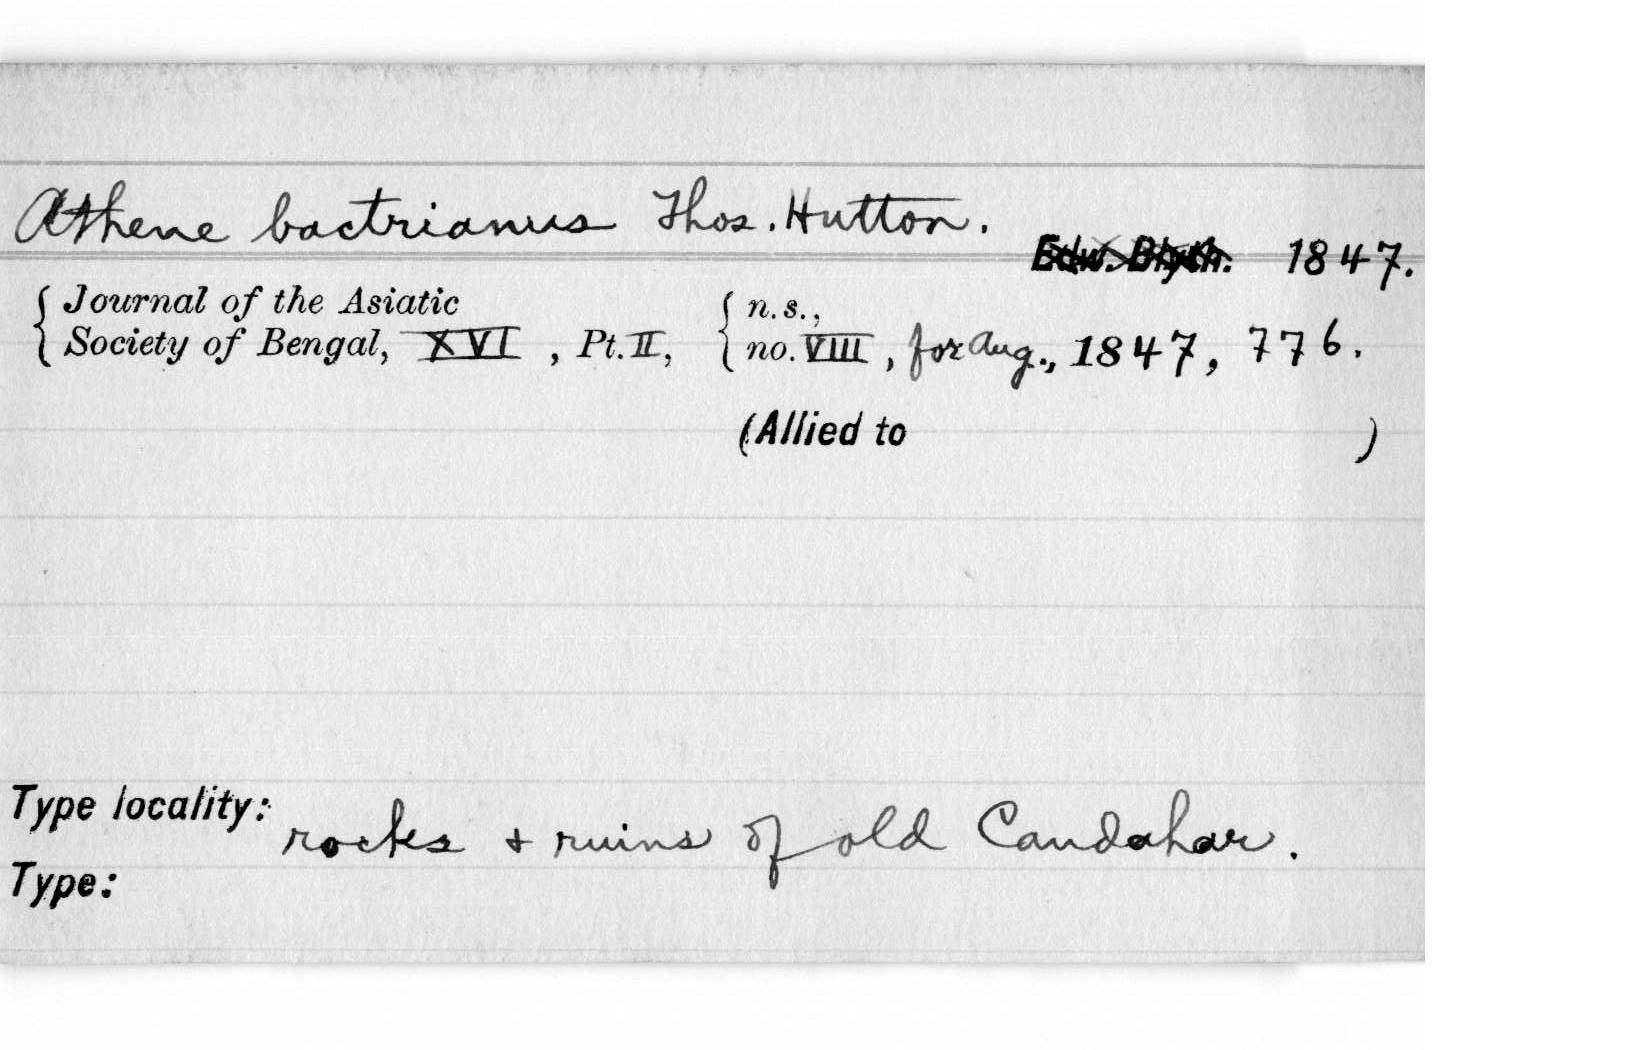 Athene bactrianus Thos. Hutton.
Edw. Blyth. 1847.
Journal of the Asiatic
Society of Bengal, XVI, Pt. II,
n.s.,
no. VIII, for Aug., 1847, 776.
(Allied to )
Type locality: rocks + ruins of old Candahar.
Type: